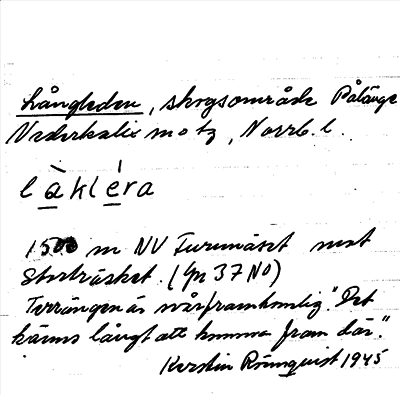 Långleden, skogsområde Pålänge
Nederkalix m o tg, Norrb. l.
l à kl é ra
1500 m NV Furunäset mot
Storträsket. (Gp 37 NO)
Terrängen är svårframkomlig. "Det
känns långt att komma fram där."
Kerstin Rönnquist 1945